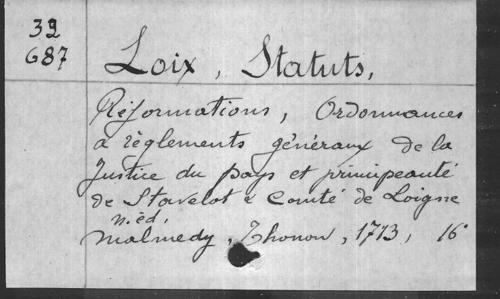 32
687
Loix, Statuts,
Réformations, Ordonnances
& règlements généraux de la
Justice du pays et principeauté
de Stavelot & Comté de Loigne
n. éd.
Malmedy, Thonon, 1713, 16°